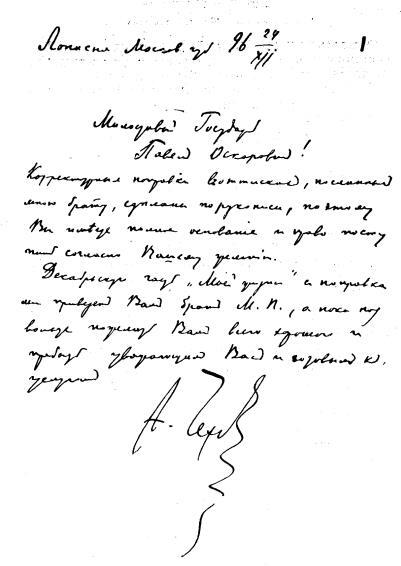 Лопасня Москов. губ 96 24/XII 1
Милостивый Государь
Павел Оскарович!
Корректурные поправки, посланные
мною брату, сделаны по рукописи, поэтому
Вы имеете полное основание и право посту
пить согласно Вашему
Декабрьскую часть „Моей жизни" с поправка
ми привезет Вам брат М. П., а пока поз
вольте пожелать Вам всего хорошего и
пребыть уважающим Вас и готовым к.
услугам
А. Чехов